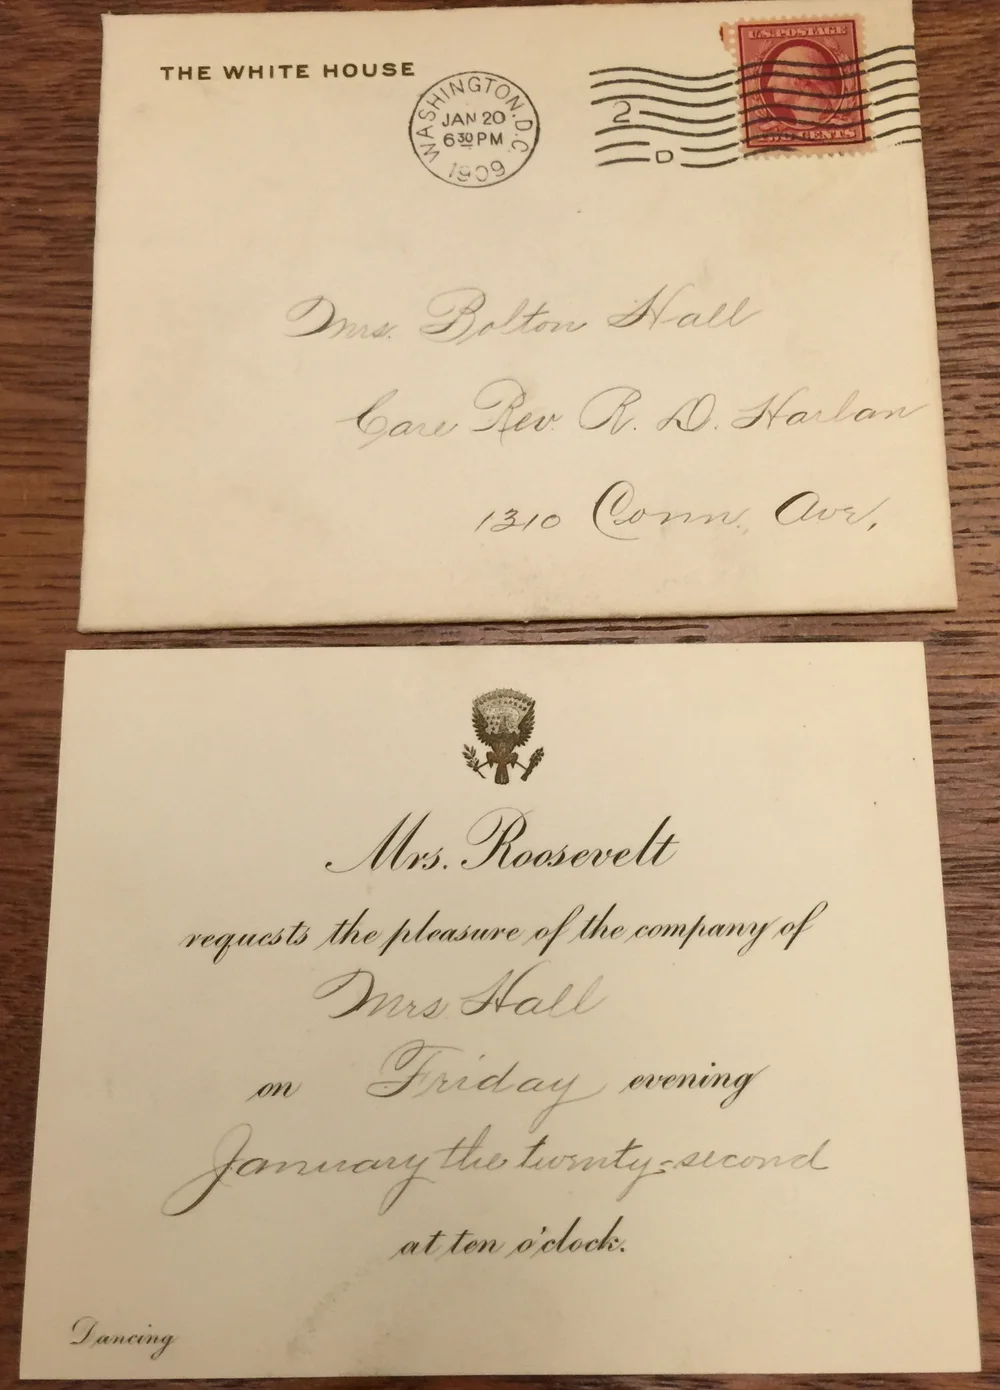 THE WHITE HOUSE
WASHINGTON, D.C.
JAN 20
6 30 PM
1909
2
D
U.S. POSTAGE
TWO CENTS
Mrs. Bolton Hall
Care Rev. R. D. Harlan
1310 Conn. Ave.
Mrs. Roosevelt
requests the pleasure of the company of
Mrs Hall
on Friday evening
January the twenty-second
at ten o'clock.
Dancing